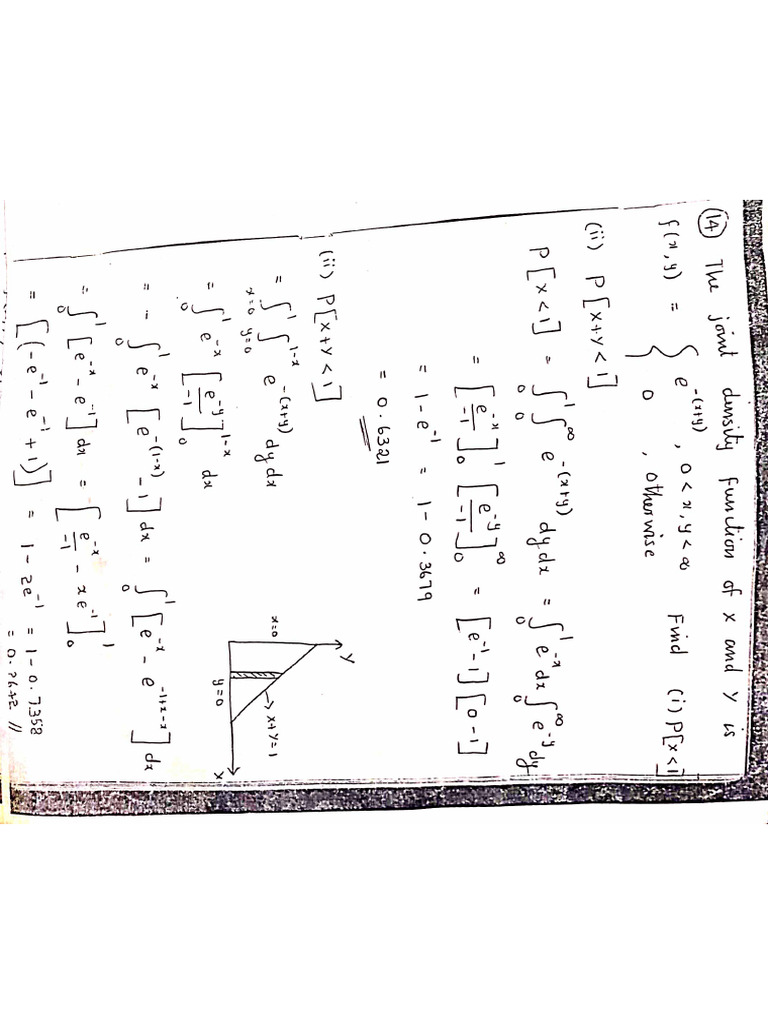 (14) The joint density function of X and Y is
f(x,y) = { e^-(x+y), 0<x,y<∞ Find (i) P[X<1]
0, otherwise
(ii) P[X+Y<1]
P[X<1] = ∫₀¹ ∫₀^∞ e^-(x+y) dydx = ∫₀¹ e^-x dx ∫₀^∞ e^-y dy
= [e^-x/-1]₀¹ [e^-y/-1]₀^∞ = [e^-1 -1][0-1]
= 1-e^-1 = 1-0.3679
= 0.6321
(ii) P[X+Y<1]
= ∫_{x=0}^1 ∫_{y=0}^{1-x} e^-(x+y) dydx
= ∫₀¹ e^-x [e^-y/-1]₀^{1-x} dx
Y
x=0
x+y=1
y=0
X
= - ∫₀¹ e^-x [e^-(1-x) -1] dx = ∫₀¹ [e^-x - e^{-1+x-x}] dx
= ∫₀¹ [e^-x - e^-1] dx = [e^-x/-1 - xe^-1]₀¹
= [(-e^-1 - e^-1 + 1)] = 1-2e^-1 = 1-0.7358
= 0.2642 //